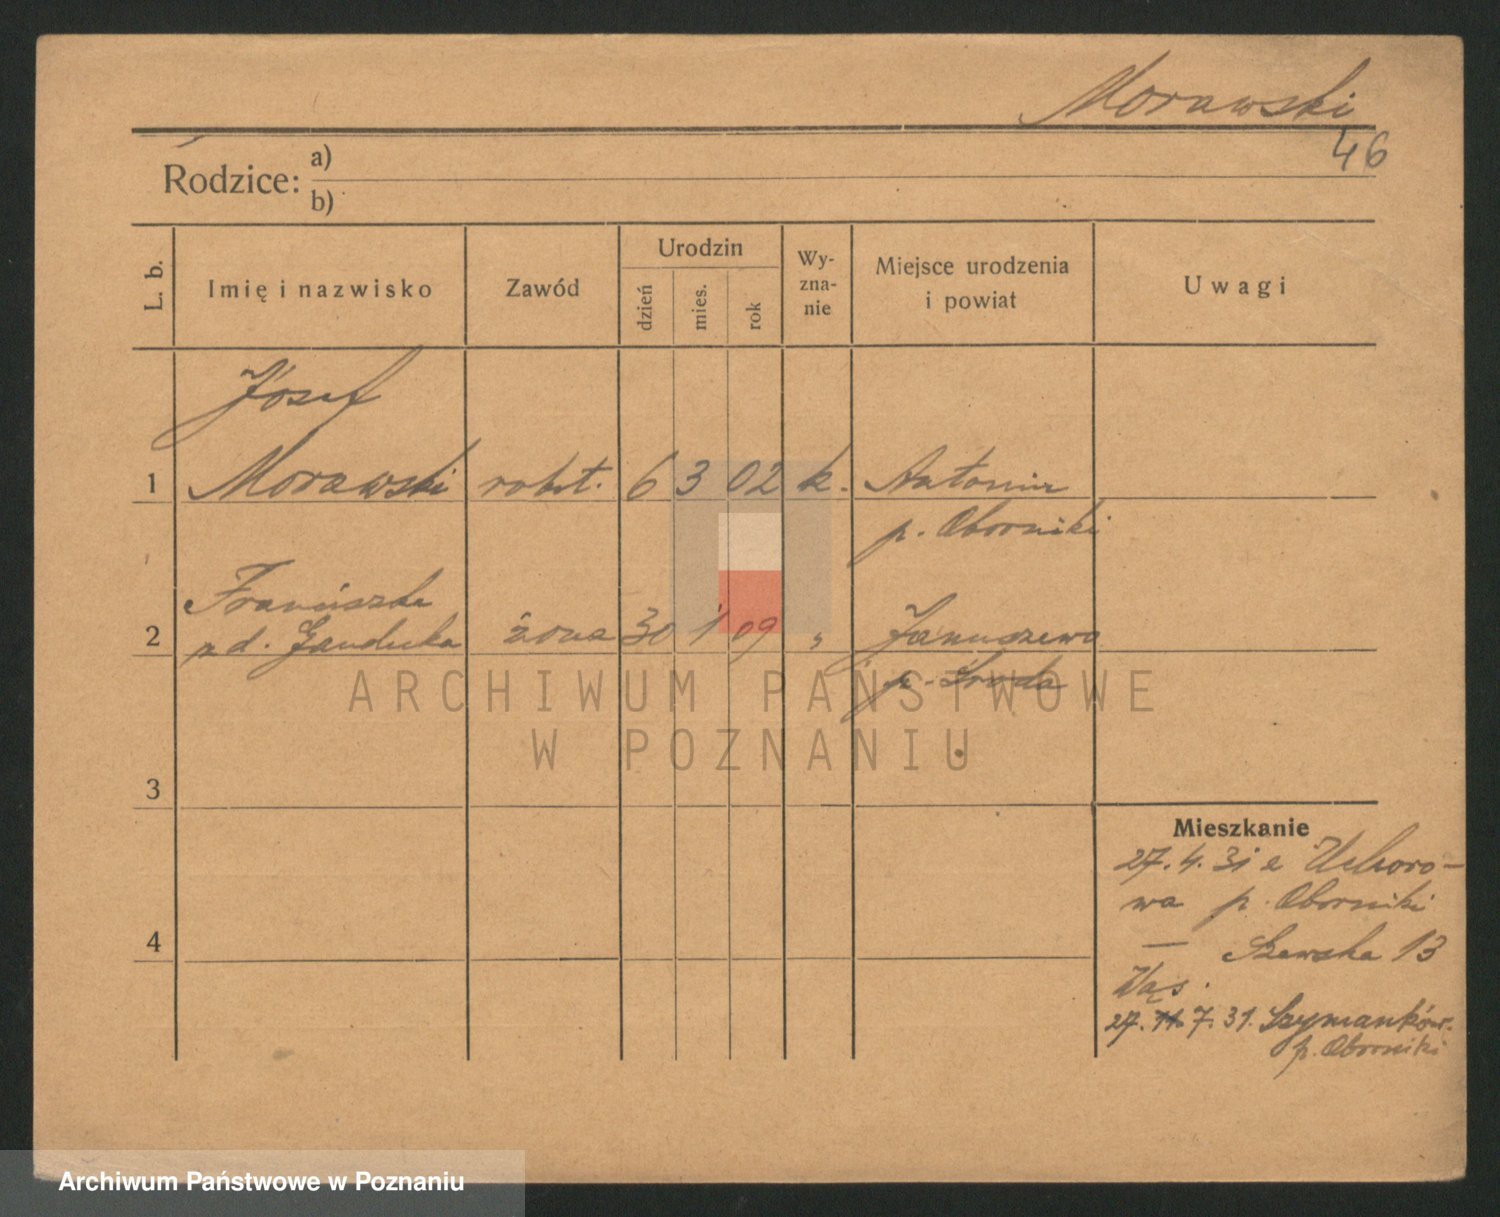 Morawski
46
Rodzice: a)
b)
L. b.
Imię i nazwisko
Zawód
Urodzin
dzień
mies.
rok
Wy-
zna-
nie
Miejsce urodzenia
i powiat
Uwagi
Józef
1 Morawski robot. 6 3 02 k. Antonin
p. Oborniki
Franciszka
2 zd. Ganducka żona 30 1 09 „ Januszewo
p. Środa
ARCHIWUM PAŃSTWOWE
W POZNANIU
3
4
Mieszkanie
27. 4. 31 z Uchoro-
wa p. Oborniki
— Szewska 13
Wąs.
27. 7. 31. Szymanków.
p. Oborniki
Archiwum Państwowe w Poznaniu